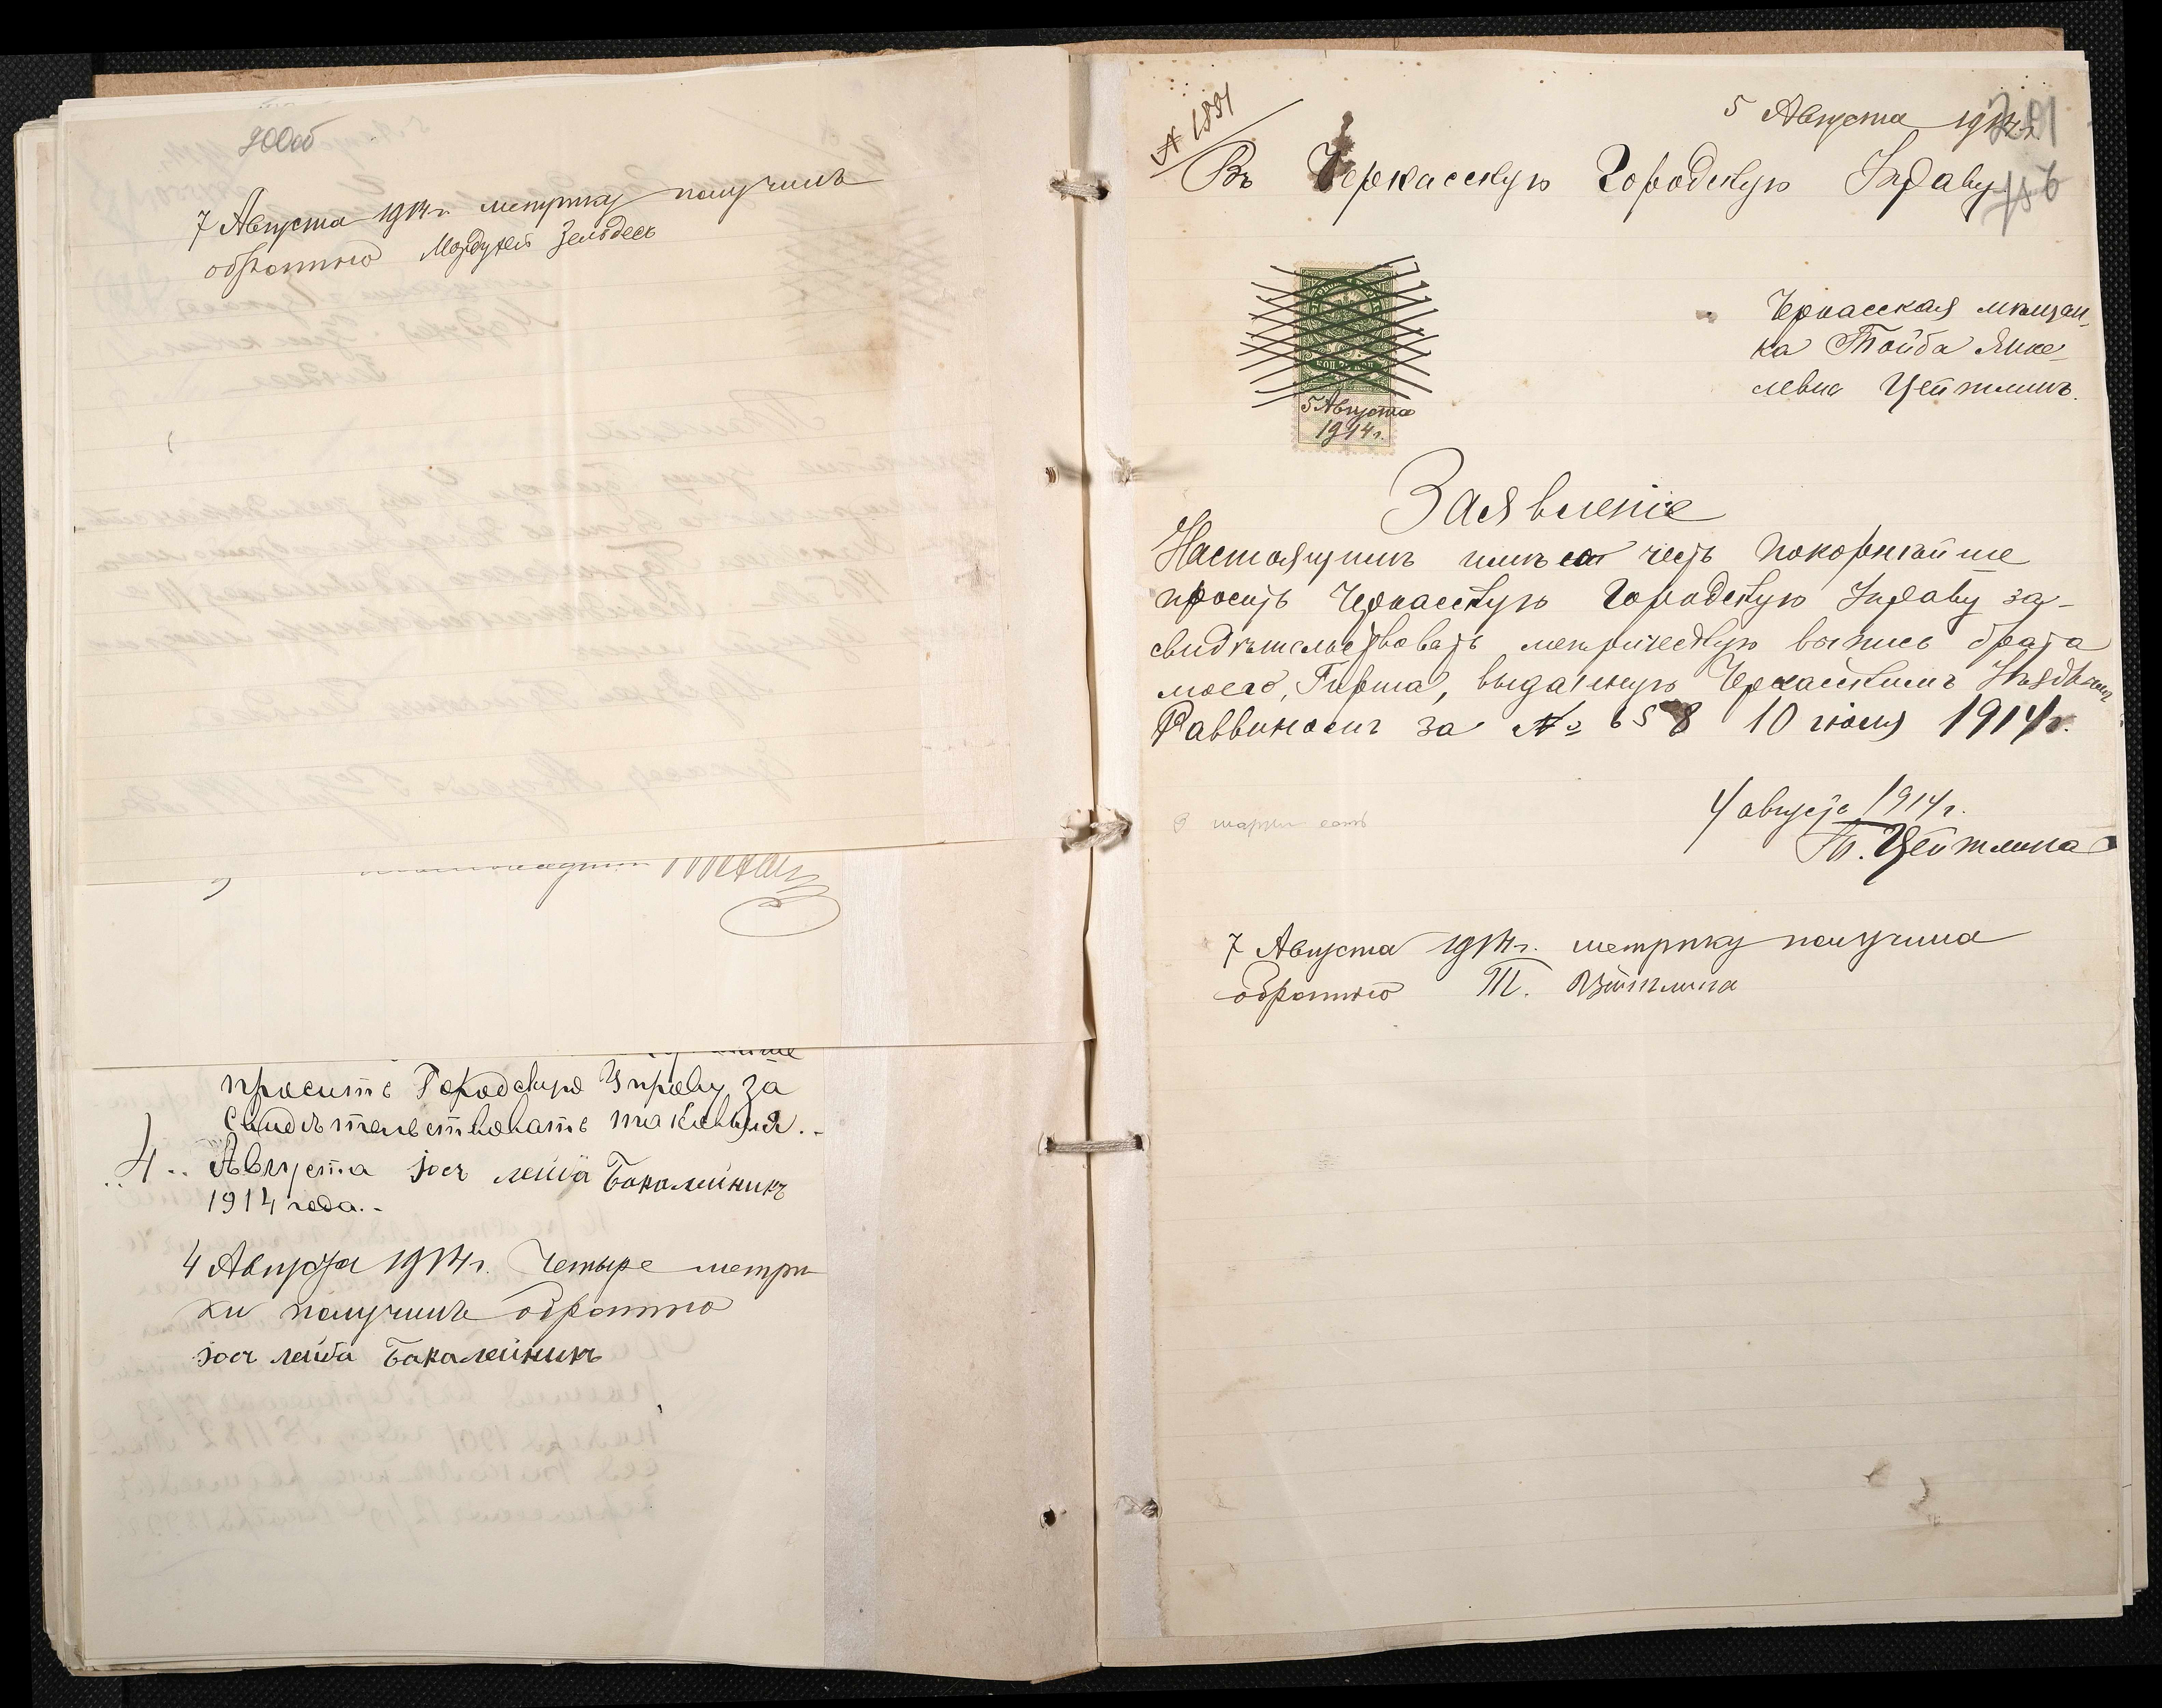 200об
7 Августа 1914 г. метрику получилъ
обратно Мордухей Зельдесъ
проситъ Городскую Управу за
свидѣтельствовать таковыя.-
4.. Августа Іосъ лейба Бакалейникъ
1914 года.-
4 Августа 1914 г. Четыре метри
ки получилъ обратно
Іосъ лейба Бакалейникъ
5 Августа 1914 г.
201
№ 1891
Въ Черкасскую Городскую Управу
Черкасская мѣщан-
ка Тойба Янке-
левна Цейтлинъ.
5 Августа
1914 г.
Заявленіе
Настоящимъ имѣю честь покорнѣйше
просить Черкасскую Городскую Управу за-
свидѣтельствовать метрическую выпись брата
моего, Гирша, выданную Черкасскимъ
Раввиномъ за № 658 10 іюля 1914 г.
4 августа 1914 г.
Т. Цейтлина
марки есть
7 Августа 1914 г. метрику получила
обратно Т. Цейтлина